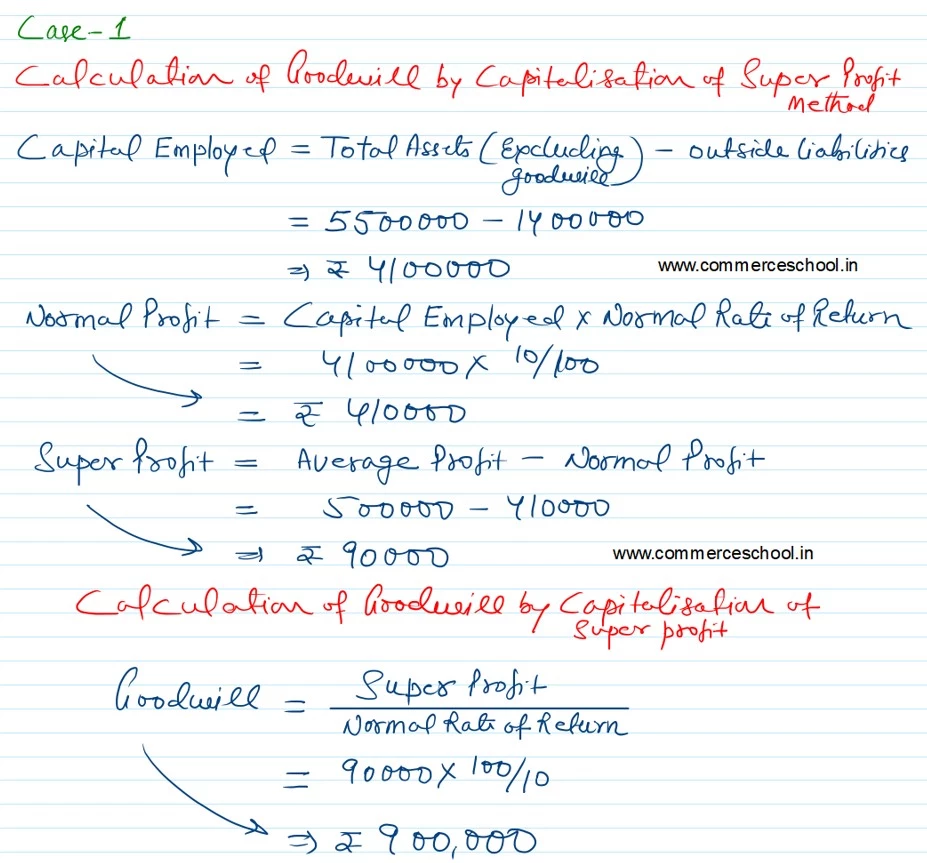 Case-1
Calculation of Goodwill by Capitalisation of Super Profit
Method
Capital Employed = Total Assets (Excluding goodwill) - outside liabilities
= 5500000 - 1400000
⇒ ₹ 4100000
www.commerceschool.in
Normal Profit = Capital Employed x Normal Rate of Return
= 4100000 x 10/100
= ₹ 410000
Super Profit = Average Profit - Normal Profit
= 500000 - 410000
⇒ ₹ 90000
www.commerceschool.in
Calculation of Goodwill by Capitalisation of
Super profit
Goodwill = Super Profit
Normal Rate of Return
= 90000 x 100/10
⇒ ₹ 900,000